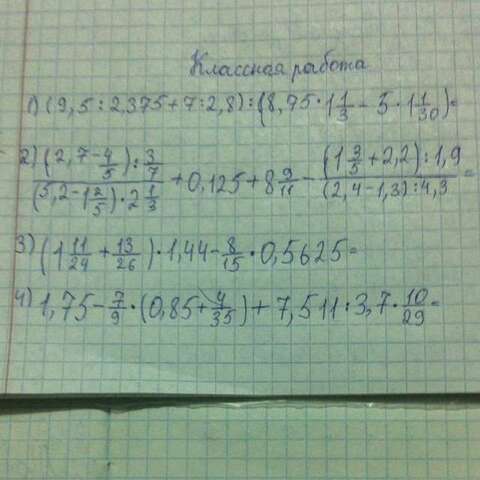 Классная работа
1) (9,5 : 2,375 + 7 : 2,8) : (8,75 · 1 1/3 - 5 · 1 1/30) =
2) ((2,7 - 4/5) : 3/7) / ((5,2 - 1 2/5) · 2 1/3) + 0,125 + 8 9/11 - ((1 3/5 + 2,2) : 1,9) / ((2,4 - 1,3) : 4,3) =
3) (1 11/24 + 13/26) · 1,44 - 8/15 · 0,5625 =
4) 1,75 - 7/9 · (0,85 + 4/35) + 7,511 : 3,7 · 10/29 =